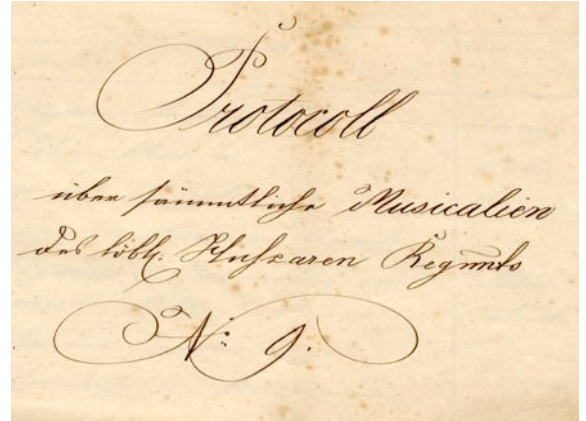 Protocoll
über sämmtliche Musicalien
des löbl. Huszaren Regmnts
No: 9.